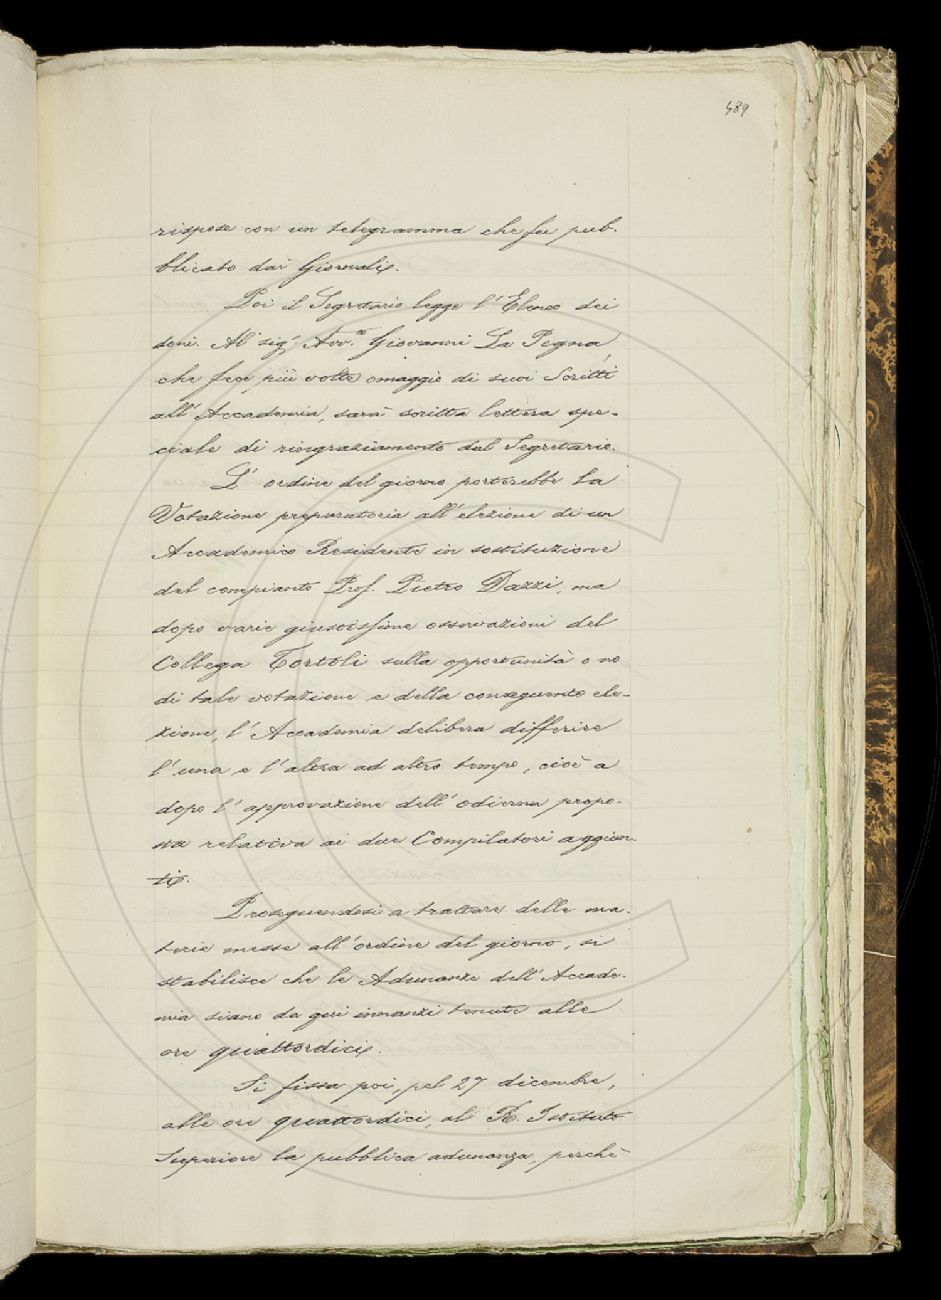 489
rispose con un telegramma che fu pub-
blicato dai Giornali.
Poi il Segretario legge l'Elenco dei
doni. Al sig.r Avv.to Giovanni La Pegna
che fece più volte omaggio di suoi Scritti
all'Accademia, sarà scritta lettera spe-
ciale di ringraziamento dal Segretario.
L'ordine del giorno porterebbe la
Votazione preparatoria all'elezione di un
Accademico Residente in sostituzione
del compianto Prof. Pietro Dazzi, ma
dopo varie giustissime osservazioni del
Collega Tortoli sulla opportunità o no
di tale votazione e della conseguente ele-
zione, l'Accademia delibera differire
l'una e l'altra ad altro tempo, cioè a
dopo l'approvazione dell'odierna propo-
sta relativa ai due Compilatori aggiun-
ti.
Proseguendosi a trattare delle ma-
terie messe all'ordine del giorno, si
stabilisce che le Adunanze dell'Accade-
mia siano da qui innanzi tenute alle
ore quattordici.
Si fissa poi, pel 27 dicembre,
alle ore quattordici, al R. Istituto
Superiore la pubblica adunanza, perchè